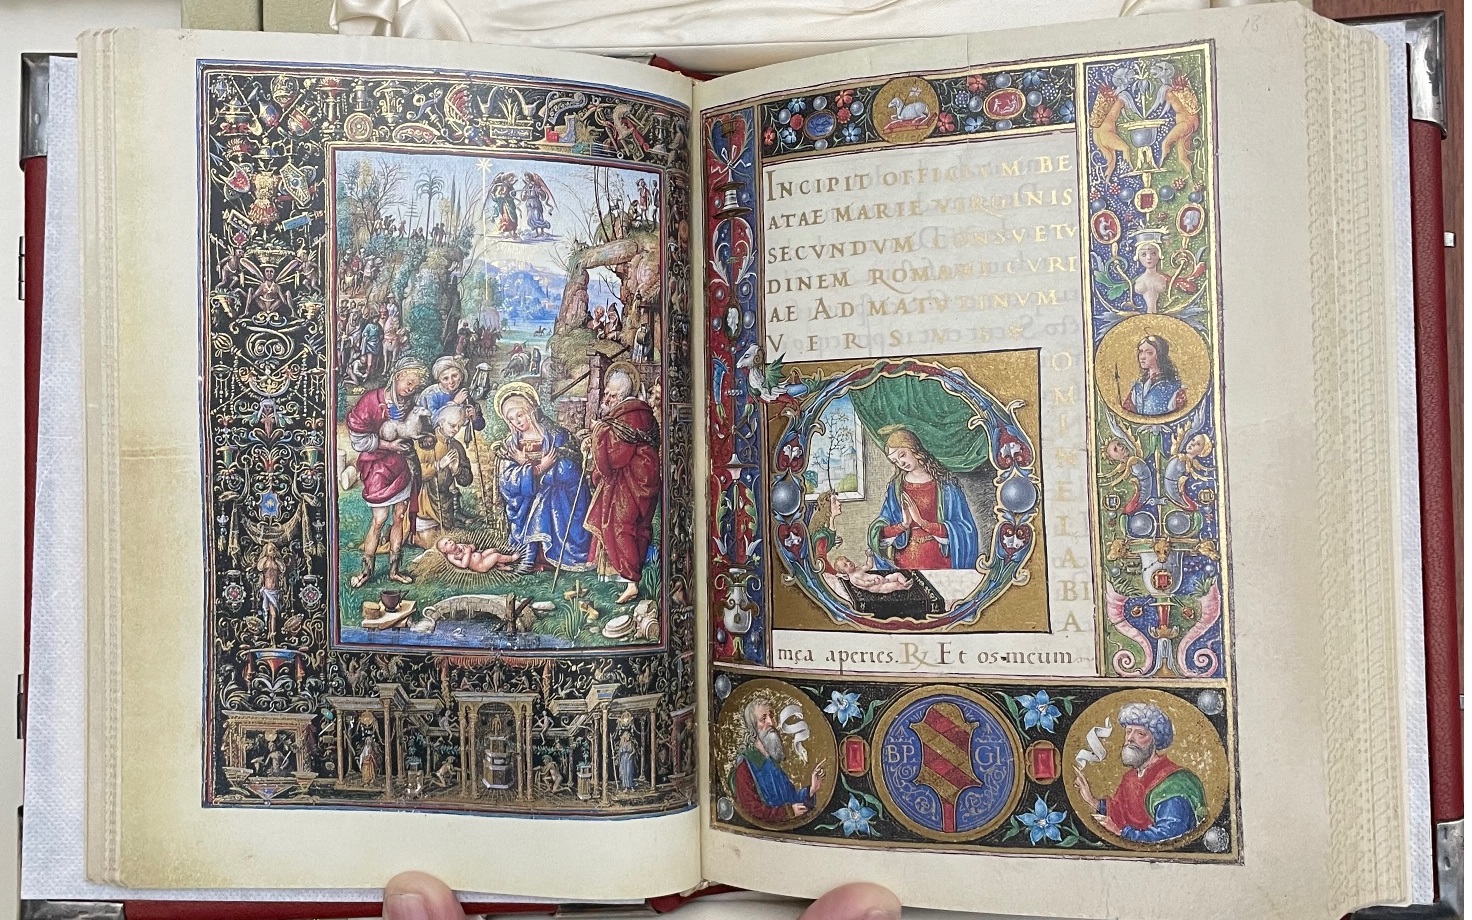 INCIPIT OFFICIUM BE
ATAE MARIE VIRGINIS
SECVNDVM CONSVETV
DINEM ROMANE CVRI
AE AD MATVTINVM
VERSVS
O
M
I
N
E
L
A
BI
A
mea aperies. ℟ Et os meum
BP. GI.
18